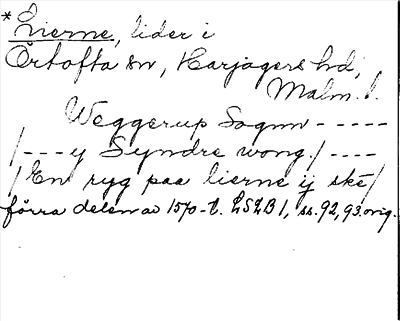 *Lierne, lider i
Örtofta sn, Harjagers hd,
Malm. l.
Weggerup Sognn - - - - -
/- - - y Syndre wong./ - - - -
/En ryg paa lierne ij ske/
förra delen av 1570-t. LSLB 1, ss. 92, 93. orig.